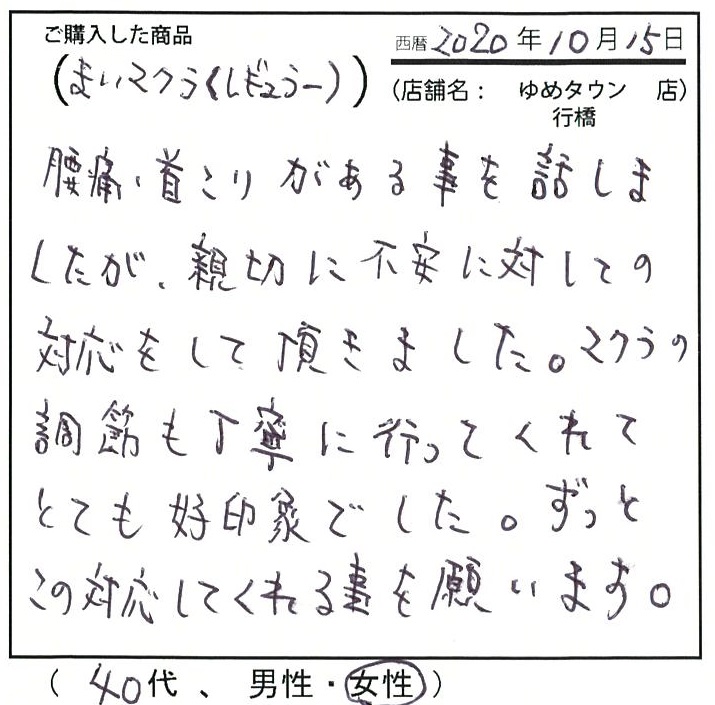 ご購入した商品
西暦2020年10月15日
(まいマクラ(レギュラー))
(店舗名： ゆめタウン 店)
行橋
腰痛、首こりがある事を話しま
したが、親切に不安に対しての
対応をして頂きました。マクラの
調節も丁寧に行ってくれて
とても好印象でした。ずっと
この対応してくれる事を願います。
(40代、男性・女性)